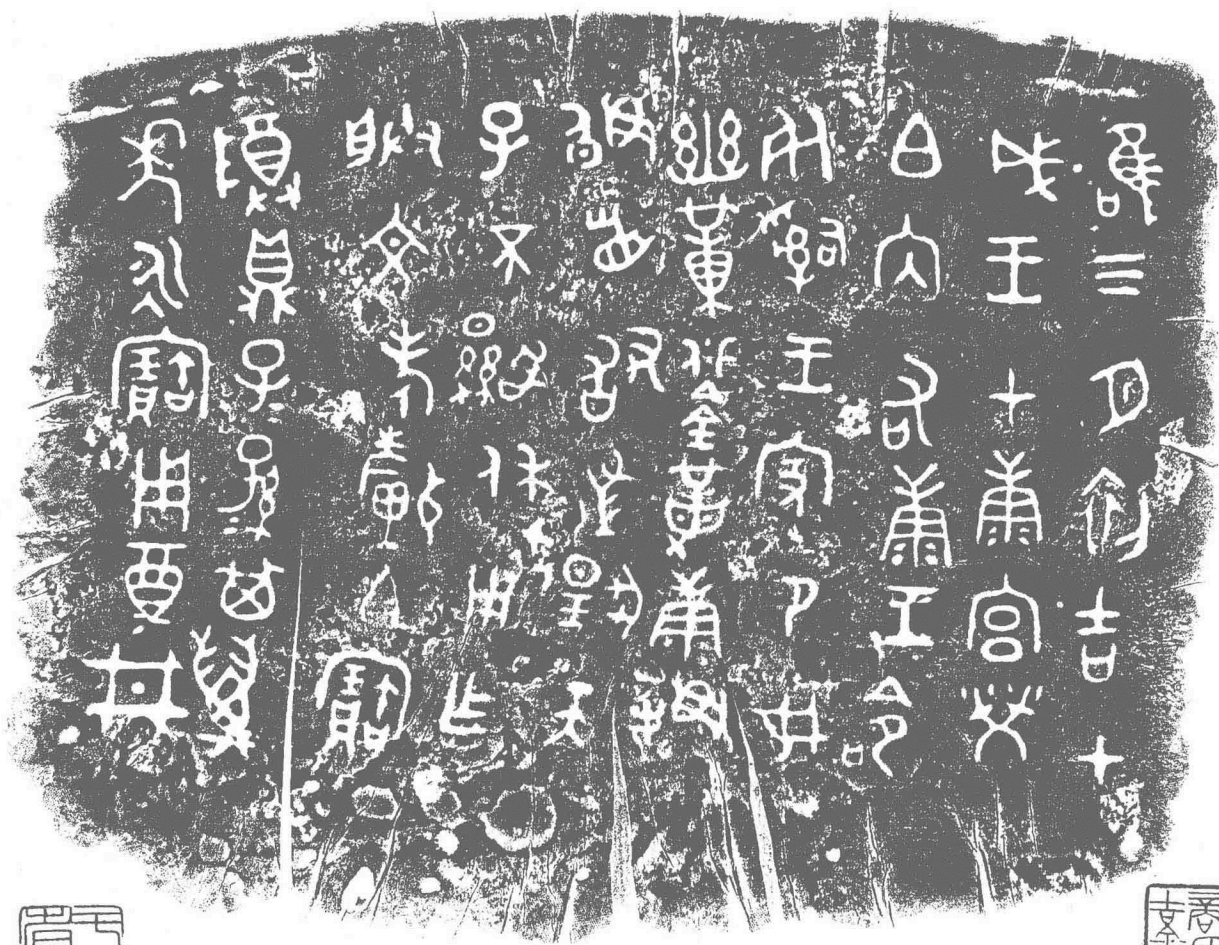 唯三月初吉甲
戌王才康宮榮
白內右康王令
死𤔲王家令女
幽黃鋚革康拜
𩒨首敢對揚天
子不顯休用乍
朕文考釐白寶
尊鼎子孫其萬
年永寶用奠井